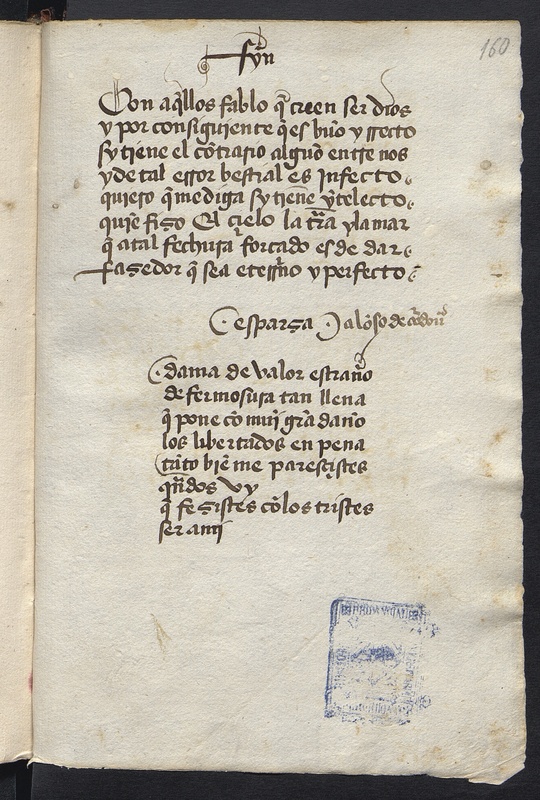 160
fyn
Con aq̃llos fablo q̃ creen ser dios
y por consiguiente q̃ es buẽo y rrecto
sy tiene el cõtrario alguõ entre nos
y de tal error bestial es infecto
quiero q̃ me diga sy tiene ỹtelecto
quiẽ fizo El çielo la trr̃a y la mar
q̃ a tal fechura forçado es de dar
façedor q̃ sea eterrño y perfecto
esparça alõso de
dama de valor estraño
de fermosura tan llena
q̃ pone cõ muy grã daño
los libertados en pena
tãto biẽ me paresçistes
qñdos vy
q̃ feçistes cõ los tristes
ser a mi